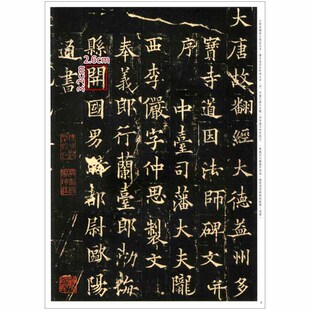 大唐故翻經大德益州多
寶寺道因法師碑文并
序 中臺司藩大夫隴
西李儼字仲思製文
奉義郎行蘭臺郎渤海
縣開國男騎都尉歐陽
通書
2.6cm